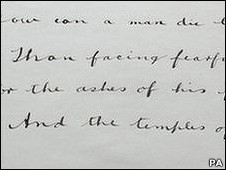 can a man die
Than facing fearfu
or the ashes of his
And the temples o
PA